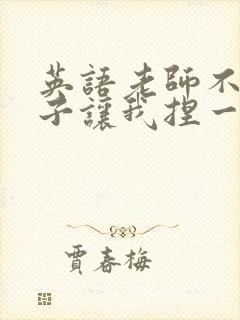 英語老師不
子讓我捏一
賈春梅